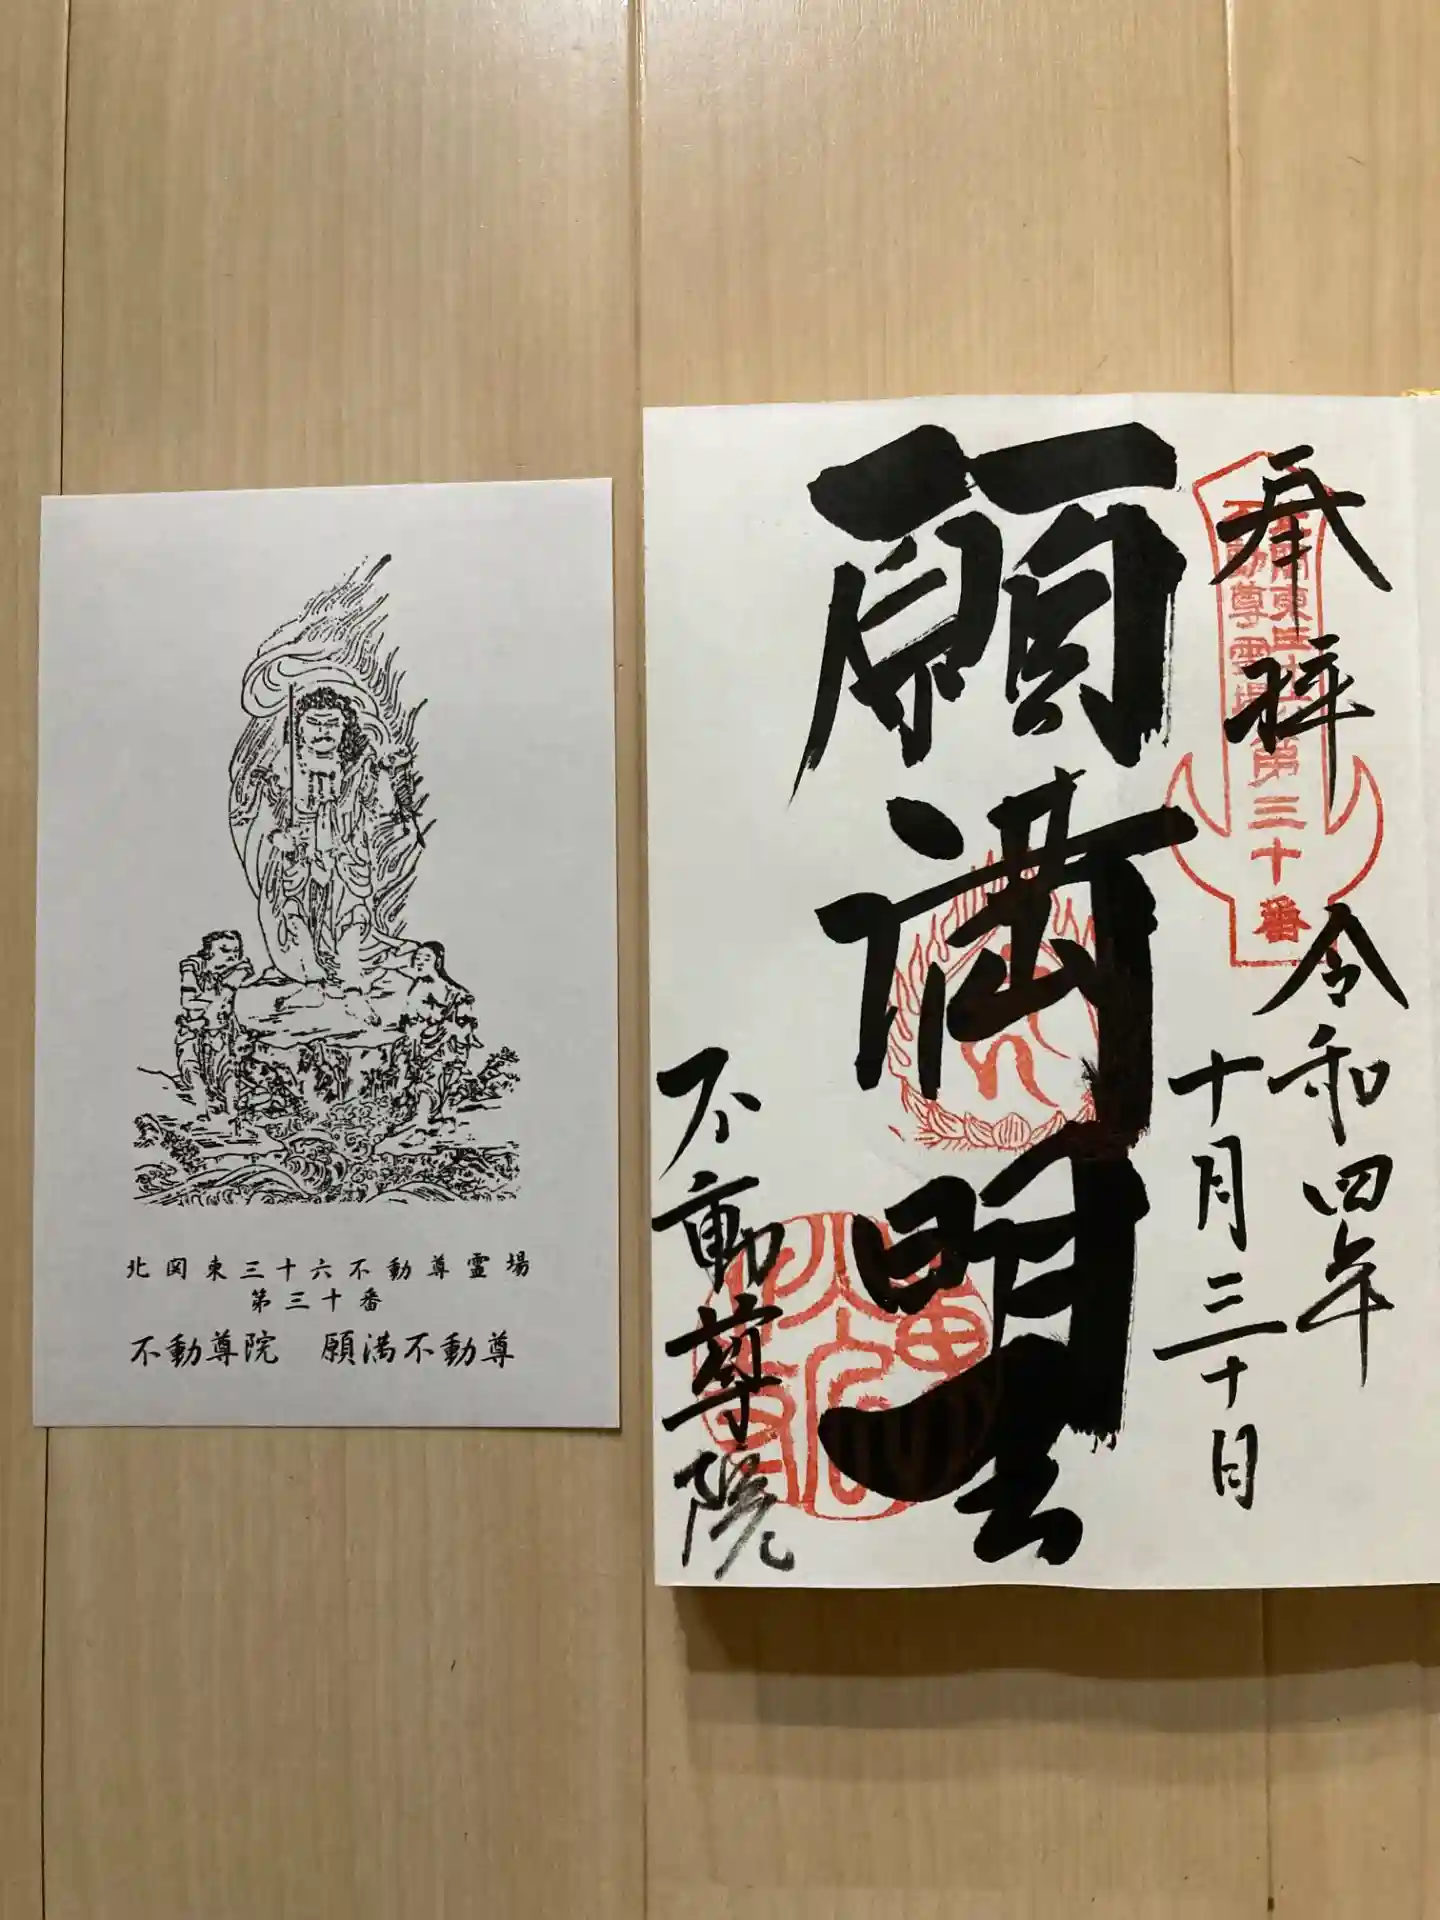 北関東三十六不動尊霊場
第三十番
不動尊院　願満不動尊
奉拝
令和四年
十月三十日
願満明王
不動尊院
北関東三十六
不動尊霊場第三十番